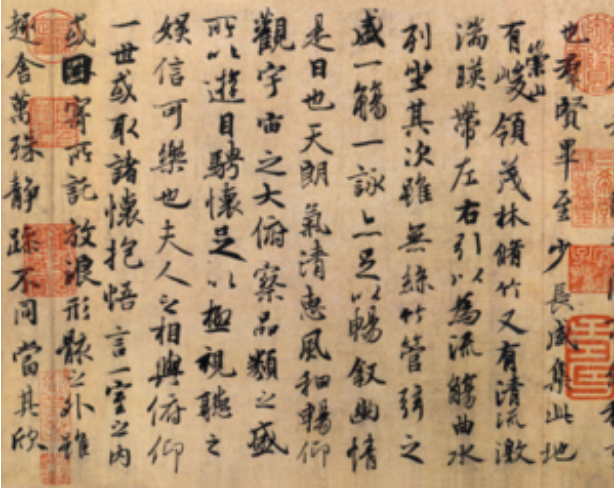 也群賢畢至少長咸集此地
有崇山峻領茂林脩竹又有清流激
湍暎帶左右引以為流觴曲水
列坐其次雖無絲竹管弦之
盛一觴一詠亦足以暢敘幽情
是日也天朗氣清惠風和暢仰
觀宇宙之大俯察品類之盛
所以遊目騁懷足以極視聽之
娛信可樂也夫人之相與俯仰
一世或取諸懷抱悟言一室之內
或因寄所託放浪形骸之外雖
趣舍萬殊靜躁不同當其欣